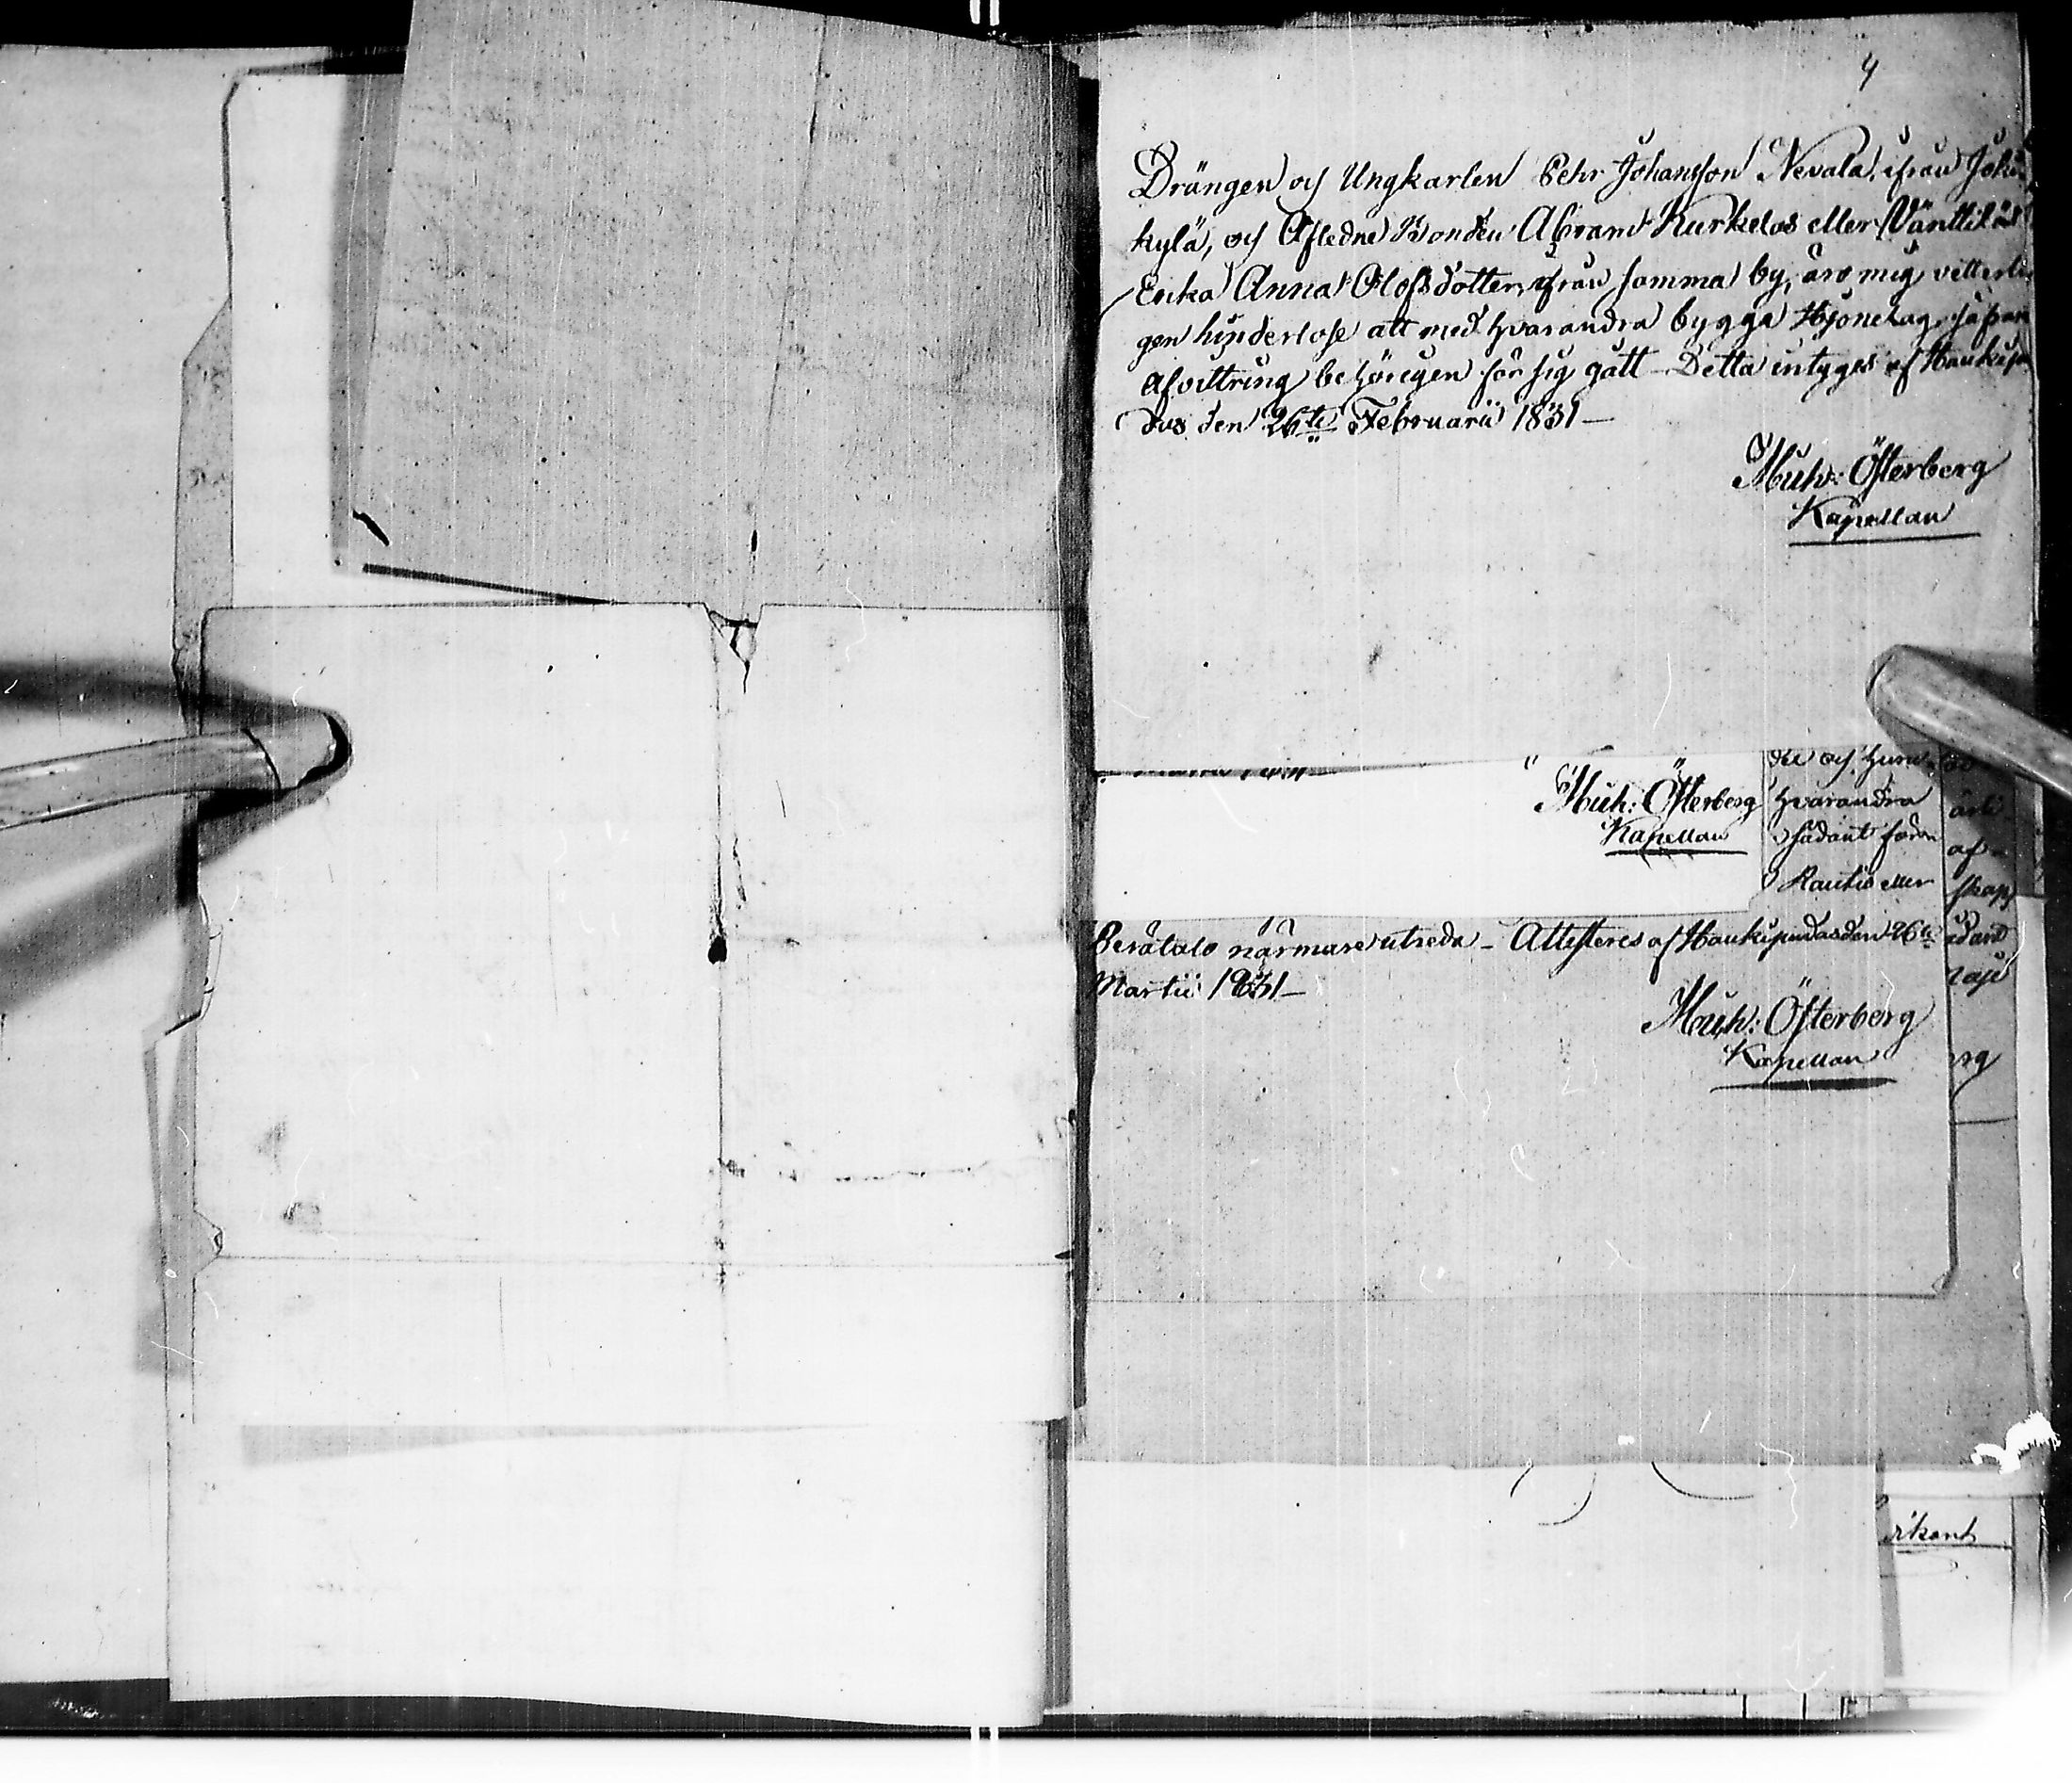 4
Drängen och Ungkarlen Pehr Johansson Nevala, ifrån Joki-
kylä, och Afledne Bonden Abram Kurkelas eller Vänttiläs
Enka Anna Olofsdotter, ifrån samma by, äro mig vetterli-
gen hinderlose att med hvarandra bygga Hjonelag, sedan
Afvittring behörigen för sig gått - Detta intyges af Haukipu-
das den 26te Februarii 1831 -
Mich: Österberg
Kapellan
Mich: Österberg
Kapellan
hvarandra
sådant
Rautio eller
af
skap
Perätalo närmare utreda - Attesteres af Haukipudas den 26te
Martii 1831 -
Mich: Österberg
Kapellan
rg